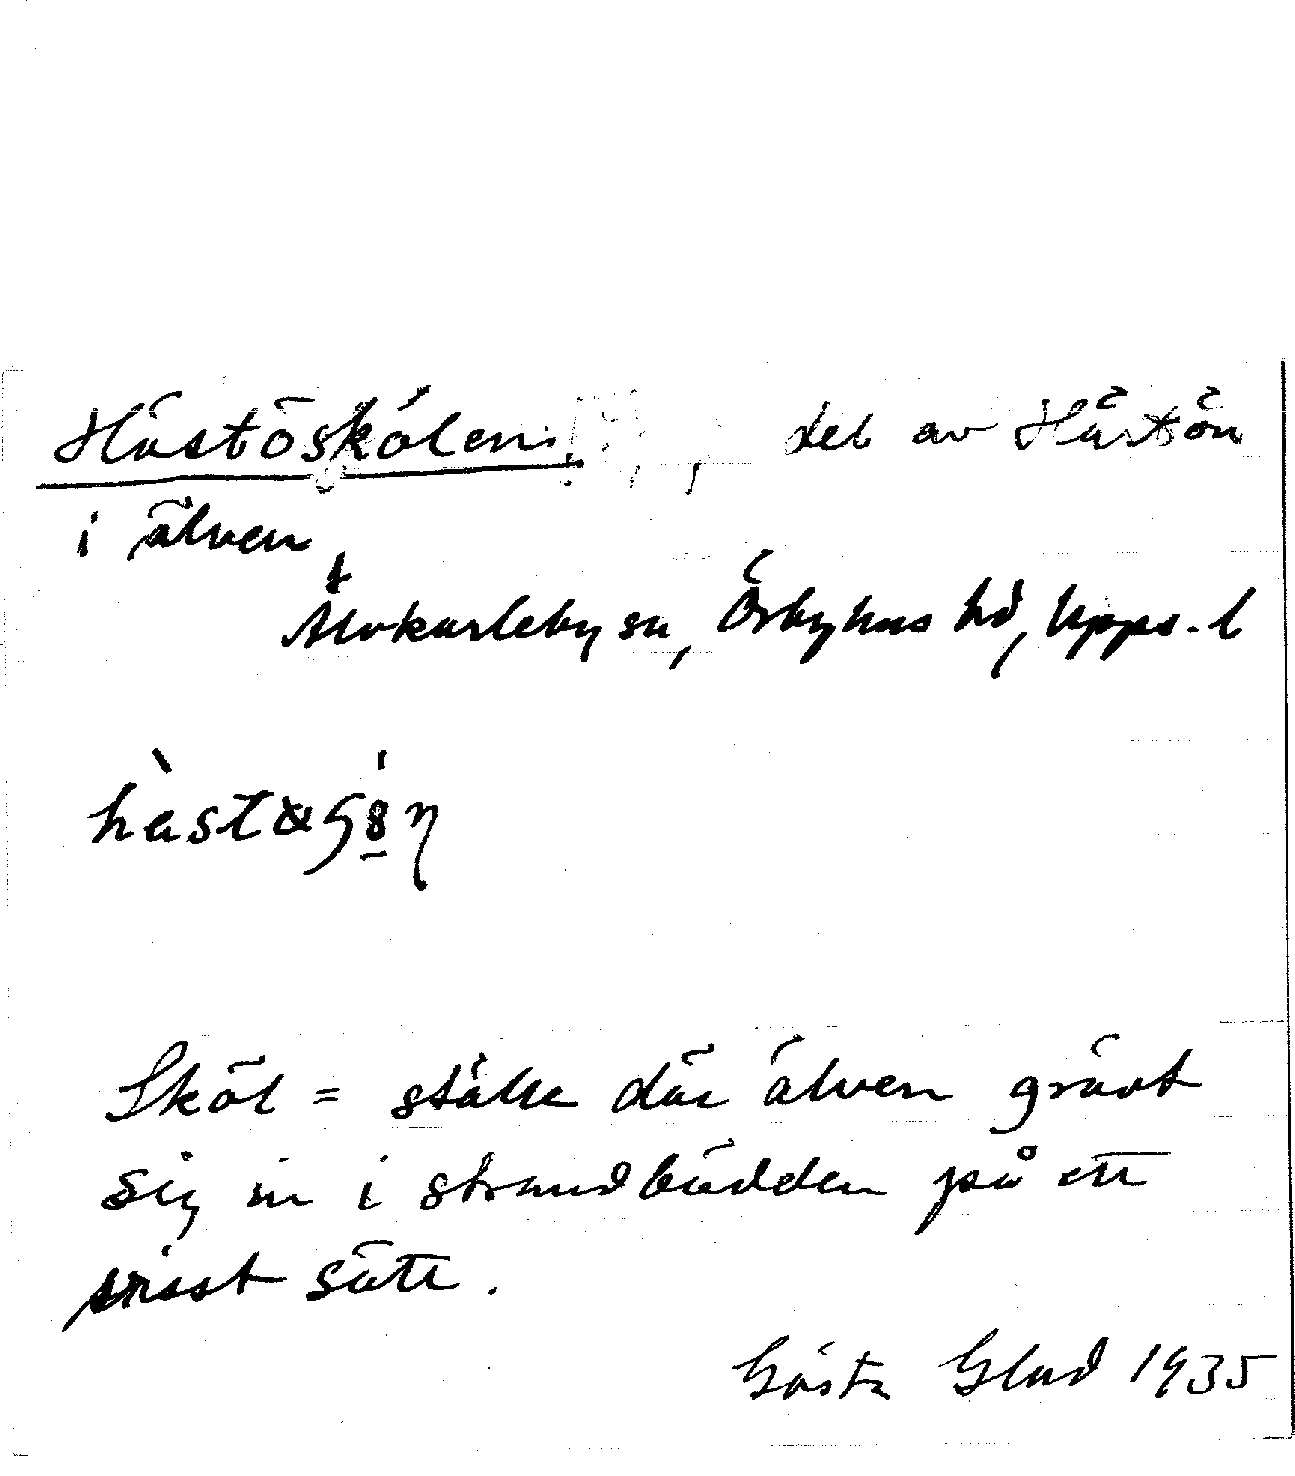 Hästöskölen, del av Hästön
i älven,
Älvkarleby sn, Örbyhus hd, Upps. l
Sköl = ställe där älven grävt
sig in i strandbädden på ett
visst sätt.
Gösta Glad 1935